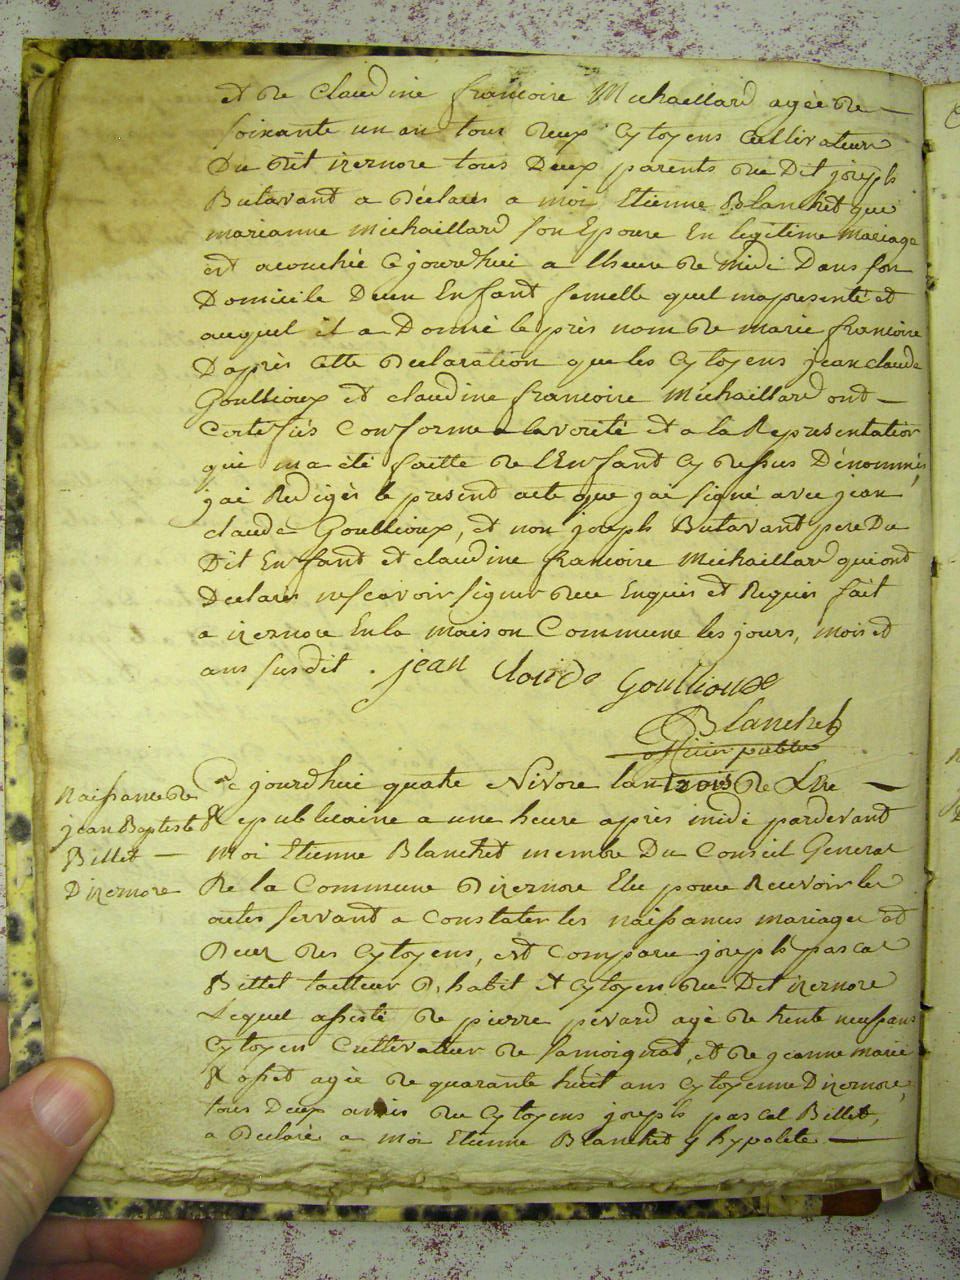 et de Claudine francoise Michaillard agée de —
soixante un an tous deux Cytoyens Cultivateurs
Du dit izernore tous Deux parents du Dit joseph
Butavant a Déclarés a moi Etienne Blanchet que
marianne Michaillard son Epouse En legitime mariage
est acouchée Cejourdhui a Lheure de midi Dans son
Domicile Dun Enfant femelle quel mapresenté et
auquel il a Donné le près nom de marie francoise
Daprès Cette Declaration que les Cytoyens jean claude
Goullioux et claudine francoise Michaillard ont —
Certifiés Conforme a laverité et a la Representation
qui ma été faitte de lEnfant Cy dessus Dénommés,
jai Redigés le present acte que jai signé avec jean
claude Goullioux, et non joseph Butavant pere Du
Dit Enfant et claudine francoise Michaillard qui ont
Declarés nescavoir signer de ce Enquis et Requis fait
a izernore En la maison Commune les jours, mois et
ans susdit . jean Claude Goullioux
Blanchet
officier public
naissance de
jean Baptiste
Billet —
Dizernore
Cejourdhui quatre Nivose lan trois de Lere —
Republicaine a une heure après midi pardevant
Moi Etienne Blanchet membre Du Conseil General
De la Commune Dizernore Elu pour Recevoir les
actes servant a Constater les naissances mariages et
Deces des Cytoyens, est Comparu joseph pascal
Billet tailleur D'habit et Cytoyen du Dit izernore
Lequel assisté de pierre pévard agé de trente neuf ans
Cytoyen Cultivateur de Samoignat, et de jeanne marie
Rosset agée de quarante huit ans Cytoyenne Dizernore,
tous Deux amis du Cytoyens joseph pascal Billet,
a Declaré a moi Etienne Blanchet q hypolete —